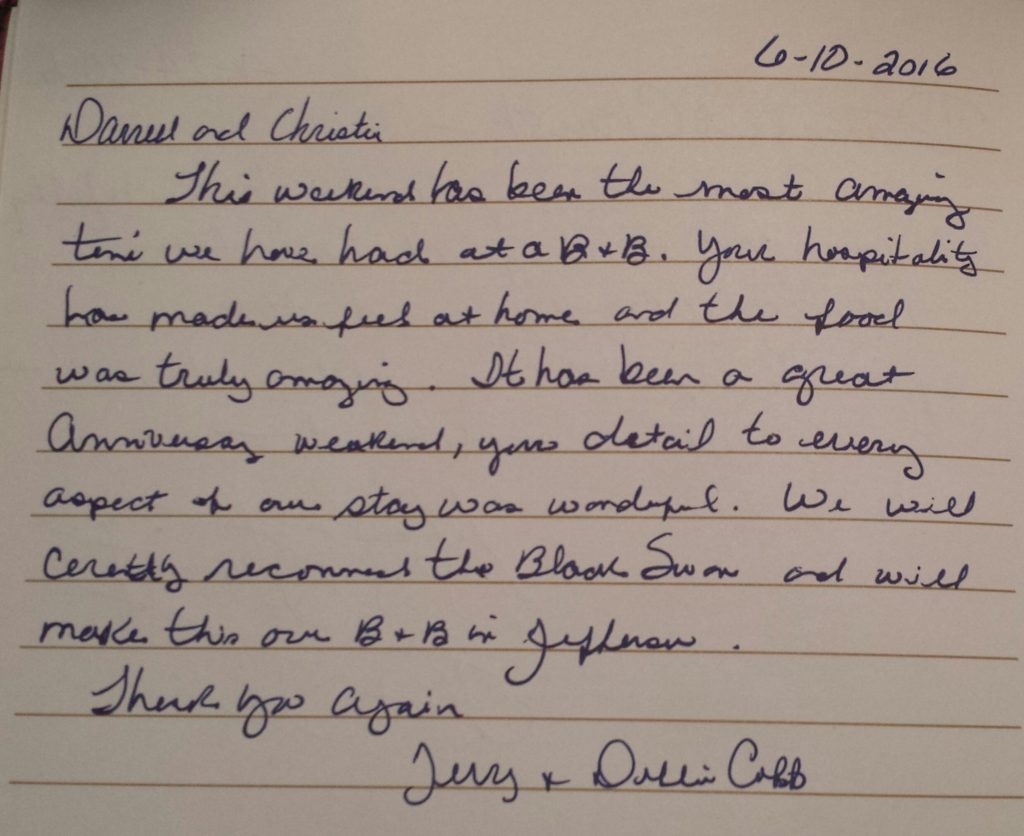 6-10-2016
and Christie
This weekend has been the most amazing
time we have had at a B+B. Your hospitality
has made us feel at home and the food
was truly amazing. It has been a great
Anniversary weekend, your detail to every
aspect of our stay was wonderful. We will
recommend the Black Swan and will
make this our B+B in Jefferson.
Thank you again
Jerry + Cobb